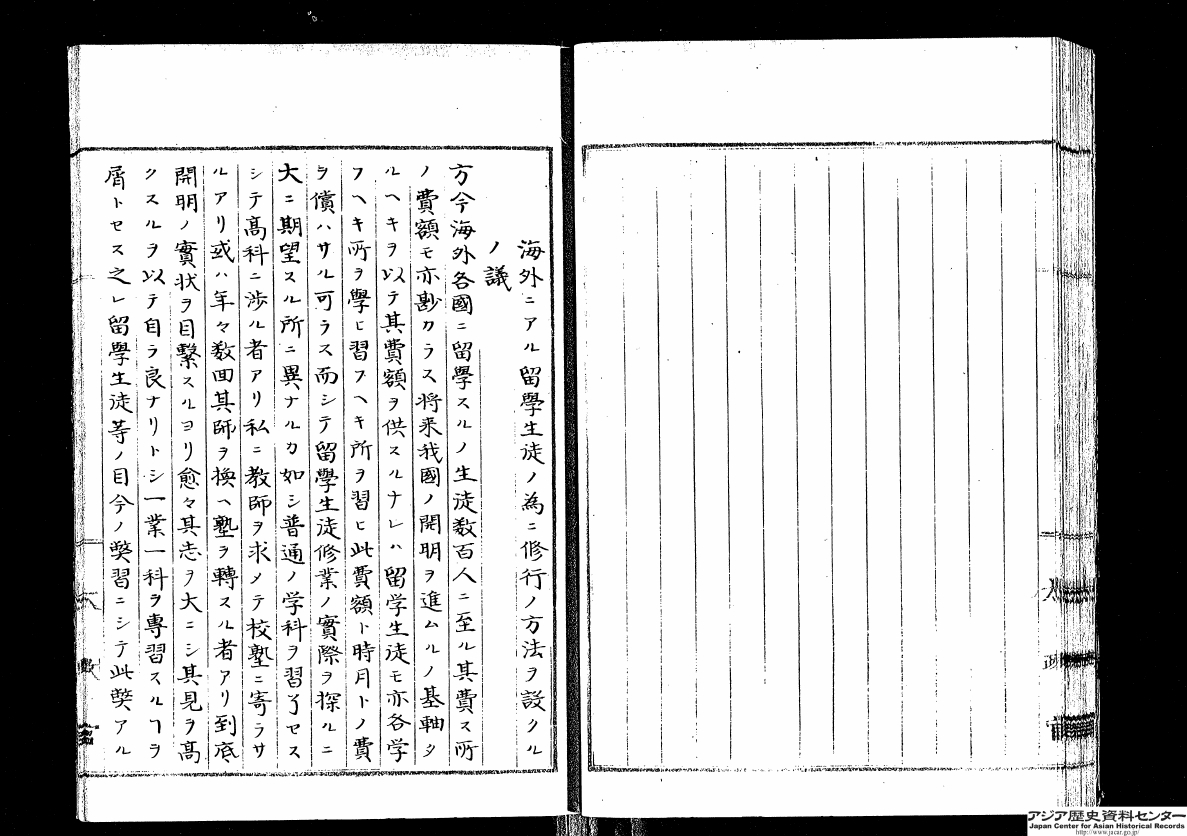 海外ニアル留學生徒ノ為ニ修行ノ方法ヲ設クル
ノ議
方今海外各國ニ留學スルノ生徒数百人ニ至ル其費ス所
ノ費額モ亦尠カラス将来我國ノ開明ヲ進ムルノ基軸タ
ルヘキヲ以テ其費額ヲ供スルナレハ留学生徒モ亦各学
フヘキ所ヲ學ヒ習フヘキ所ヲ習ヒ此費額ト時月トノ費
ヲ償ハサル可ラス而シテ留學生徒修業ノ實際ヲ探ルニ
大ニ期望スル所ニ異ナルカ如シ普通ノ学科ヲ習了セス
シテ高科ニ渉ル者アリ私ニ教師ヲ求メテ校塾ニ寄ラサ
ルアリ或ハ年々数回其師ヲ換ヘ塾ヲ轉スル者アリ到底
開明ノ實状ヲ目繋スルヨリ愈々其志ヲ大ニシ其見ヲ高
クスルヲ以テ自ラ良ナリトシ一業一科ヲ專習スルヿヲ
屑トセス之レ留學生徒等ノ目今ノ獘習ニシテ此獘アル
アジア歴史資料センター
Japan Center for Asian Historical Records
http://www.jacar.go.jp/